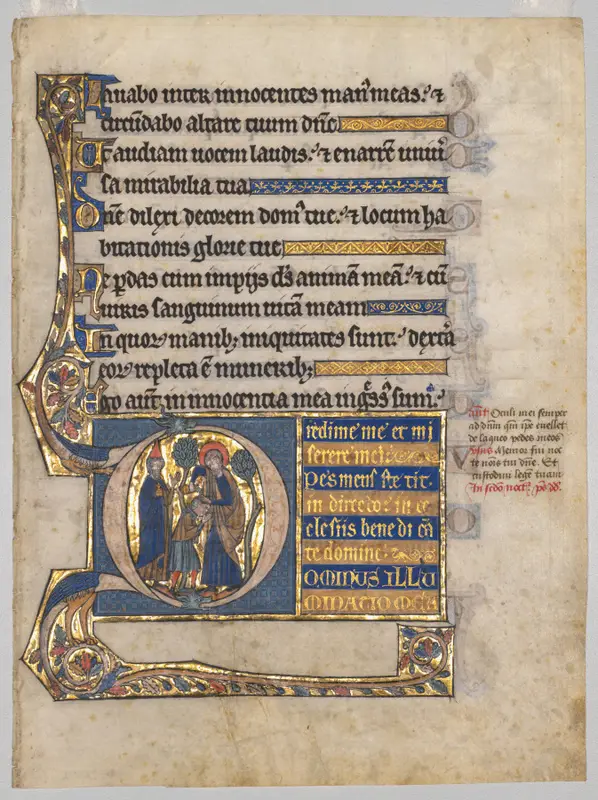 Lauabo inter innocentes man' meas: & 
circu̅dabo altare tuum dn̅e
Ut audiam uocem laudis: & enarre̅ uniu̅
sa mirabilia tua
Dn̅e dilexi decorem dom' tue: & locum ha
bitationis glorie tue
Ne p̱das cum impijs d̅s anima̅ mea̅: & cu̅
uiris sanguinum uita̅ meam
In quoꝝ manib; iniquitates sunt: dext'a
eoꝝ repleta e̅ munerib;
Ego aut̅ in innocentia mea ingr̅ss' sum:
redime me et mi
serere mei
Pes meus ste tit
in directo: in ec
clesiis bene di ca̅
te domine
DOMINUS ILLU
MINATIO MEA
an̅t Oculi mei semper
ad dn̅m qm̅ ip̅e euellet
de laqueo pedes meos
Memor fui noc
te no̅is tui dn̅e. Et
custodiui lege̅ tuam
In sc̅do noct̅.